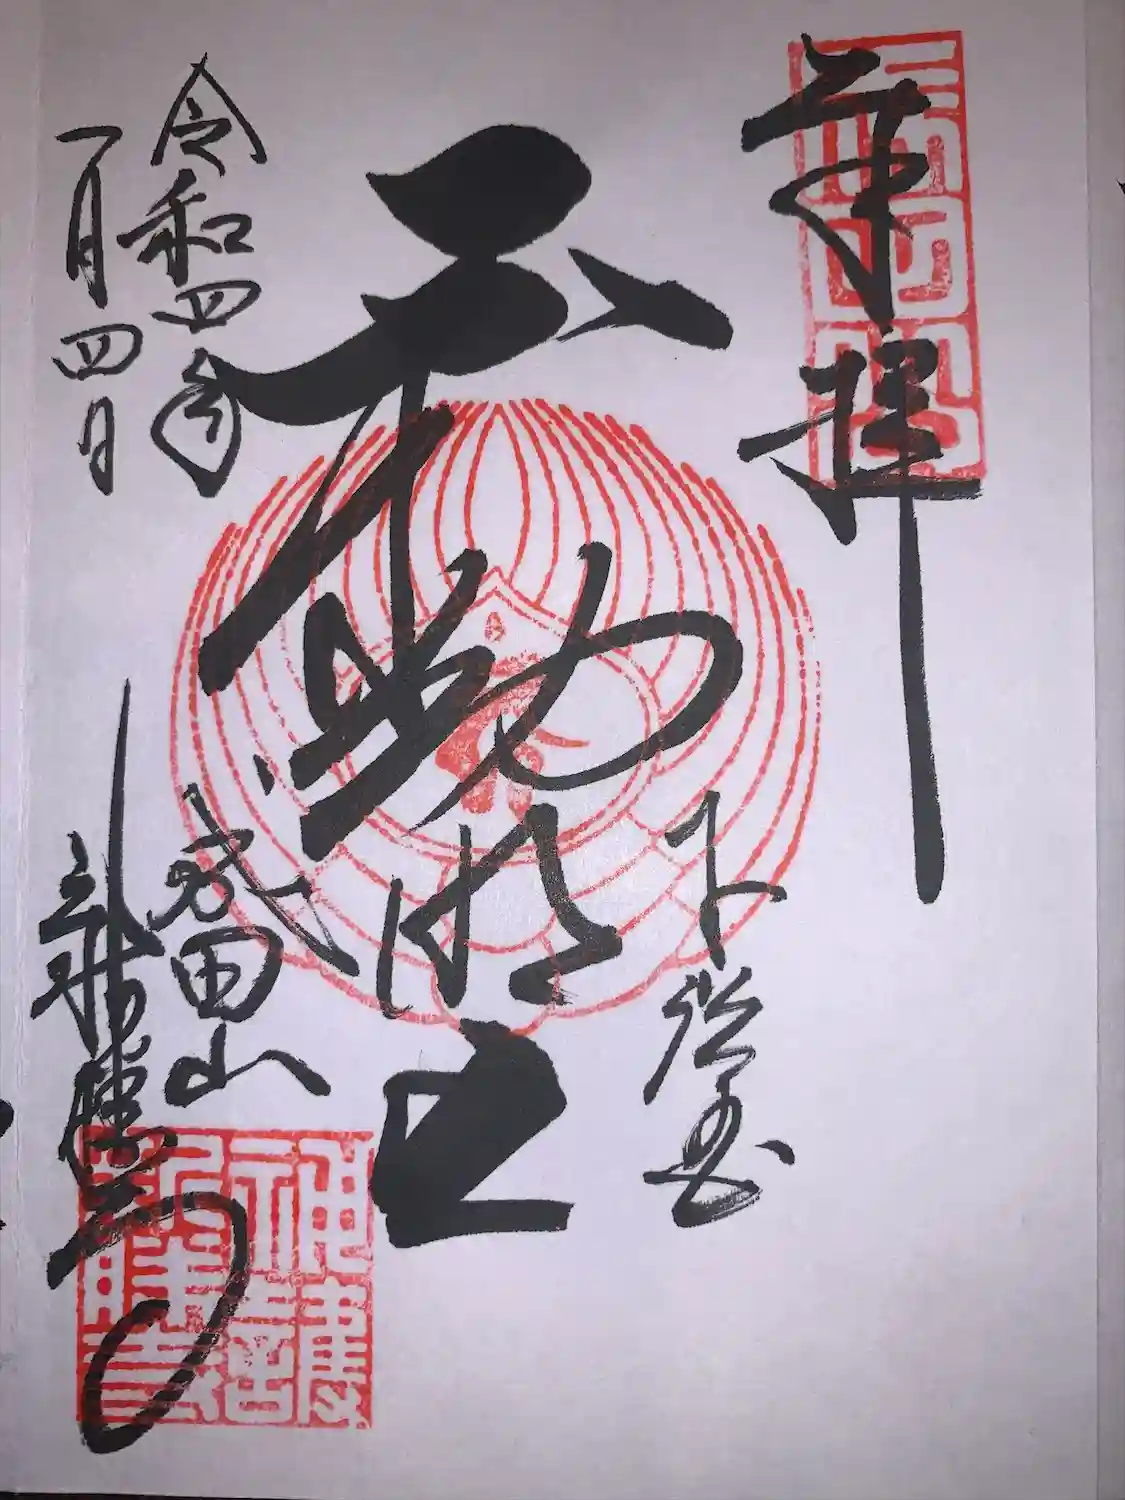 奉拝
下総国
不動明王
令和四年
一月四日
成田山
新勝寺
神護
新勝寺